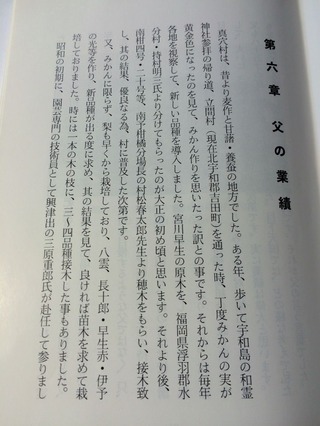 第六章 父の業績
真穴村は、昔より麦作と甘藷・養蚕の地方でした。ある年、歩いて宇和島の和霊
神社参拝の帰り道、立間村（現在北宇和郡吉田町）を通った時、丁度みかんの実が
黄金色になったのを見て、みかん作りを思いたった訳との事です。それからは毎年
各地を視察して、新しい品種を導入しました。宮川早生の原木を、福岡県浮羽郡水
分村・持村明三氏より分けてもらったのが大正の初め頃と思います。それより後、
南柑四号・二十号等、南予柑橘分場長の村松春太郎先生より穂木をもらい、接木致
し、其の結果、優良なる為、村に普及した次第です。
又、みかんに限らず、梨も早くから栽培しており、八雲、長十郎・早生赤・伊予
の光等を作り、新品種が出る度に求め、其の結果を見て、良ければ苗木を求めて栽
培しておりました。時には一本の木の枝に、三〜四品種接木した事もありました。
昭和の初期に、園芸専門の技術員として興津出の三原重郎氏が赴任して参りまし